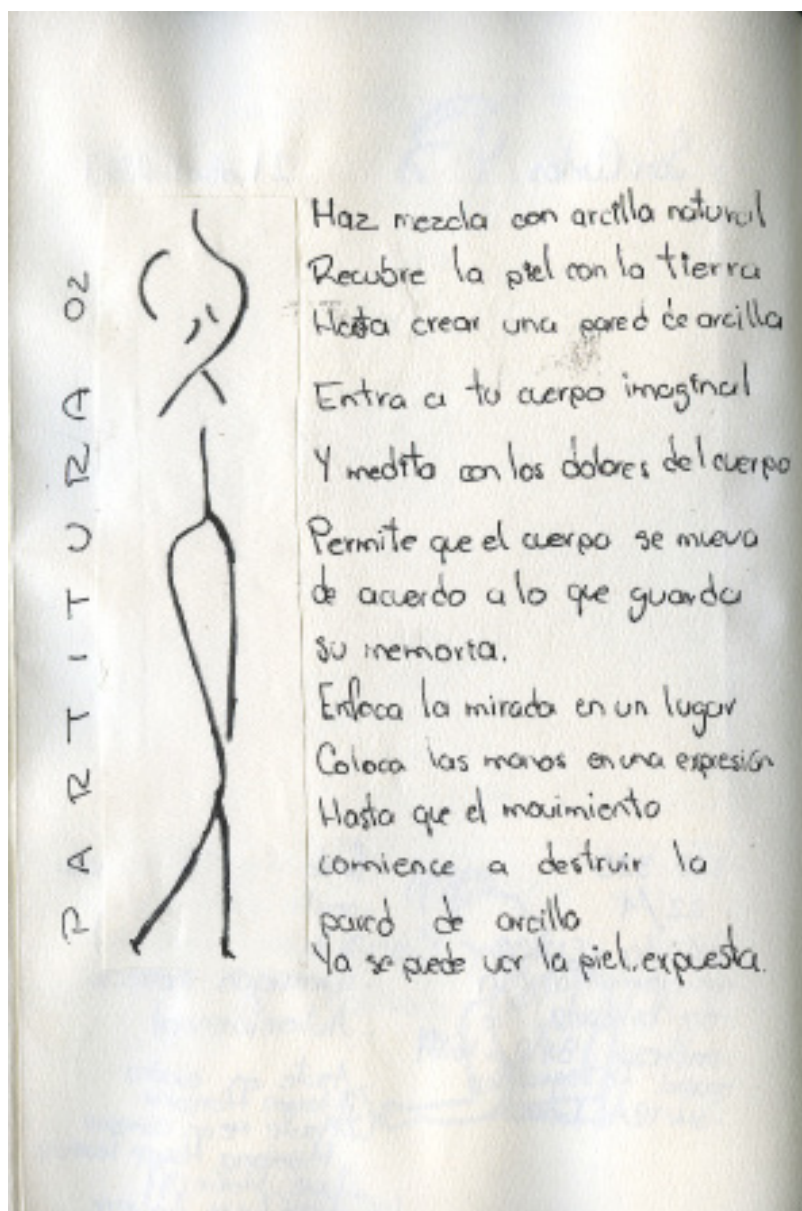 PARTITURA 02
Haz mezcla con arcilla natural
Recubre la piel con la tierra
Hasta crear una pared de arcilla
Entra a tu cuerpo imaginal
Y medita con los dolores del cuerpo
Permite que el cuerpo se mueva
de acuerdo a lo que guarda
su memoria.
Enfoca la mirada en un lugar
Coloca las manos en una expresión
Hasta que el movimiento
comience a destruir la
pared de arcilla
Ya se puede ver la piel expuesta.